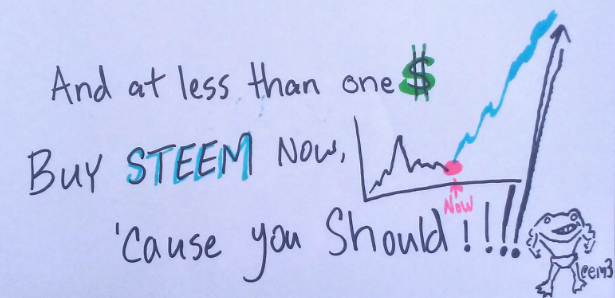 And at less than one $
Buy STEEM Now,
Now
'Cause you Should!!!!
leem3